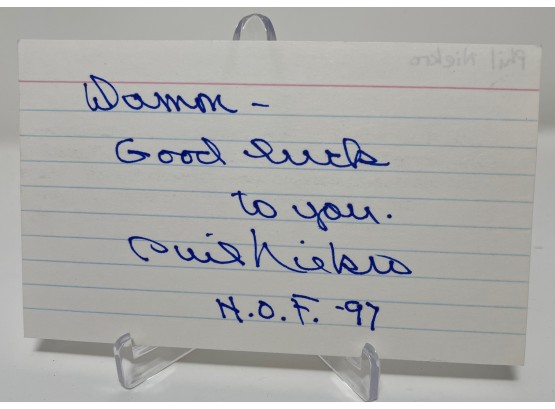 Phil Niekro
Damon -
Good luck
to you.
Phil Niekro
H.O.F. -97